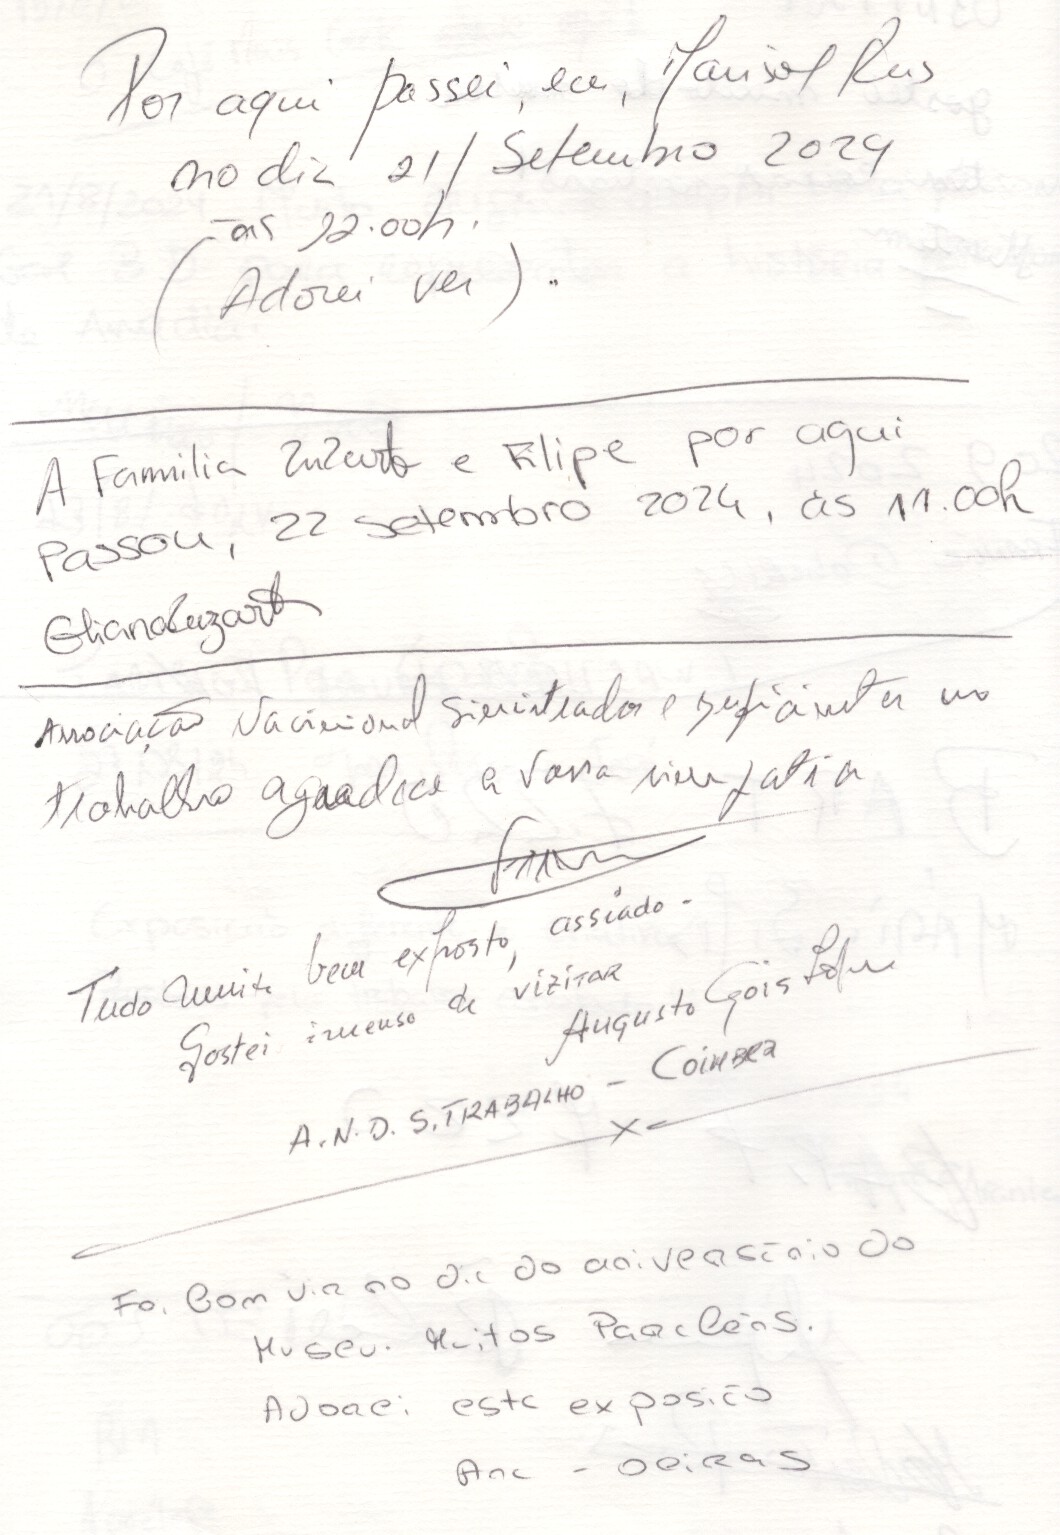 Por aqui passei, eu, Marisol Rus
no dia 21/ Setembro 2024
às 12.00h.
(Adorei ver).
A Familia Luzarte e Filipe por aqui
Passou, 22 setembro 2024, às 11.00h
Eliana Luzarte
Associação Nacional Sinistrados e Deficientes no
trabalho agradece a vossa simpatia
Tudo muito bem exposto, assiado -
Gostei imenso de vizitar
Augusto Gois
A.N.D.S.TRABALHO - COIMBRA
Foi bom vir no dia do aniversário do
Museu. Muitos Parabéns.
Adorei esta exposição
Ana - Oeiras